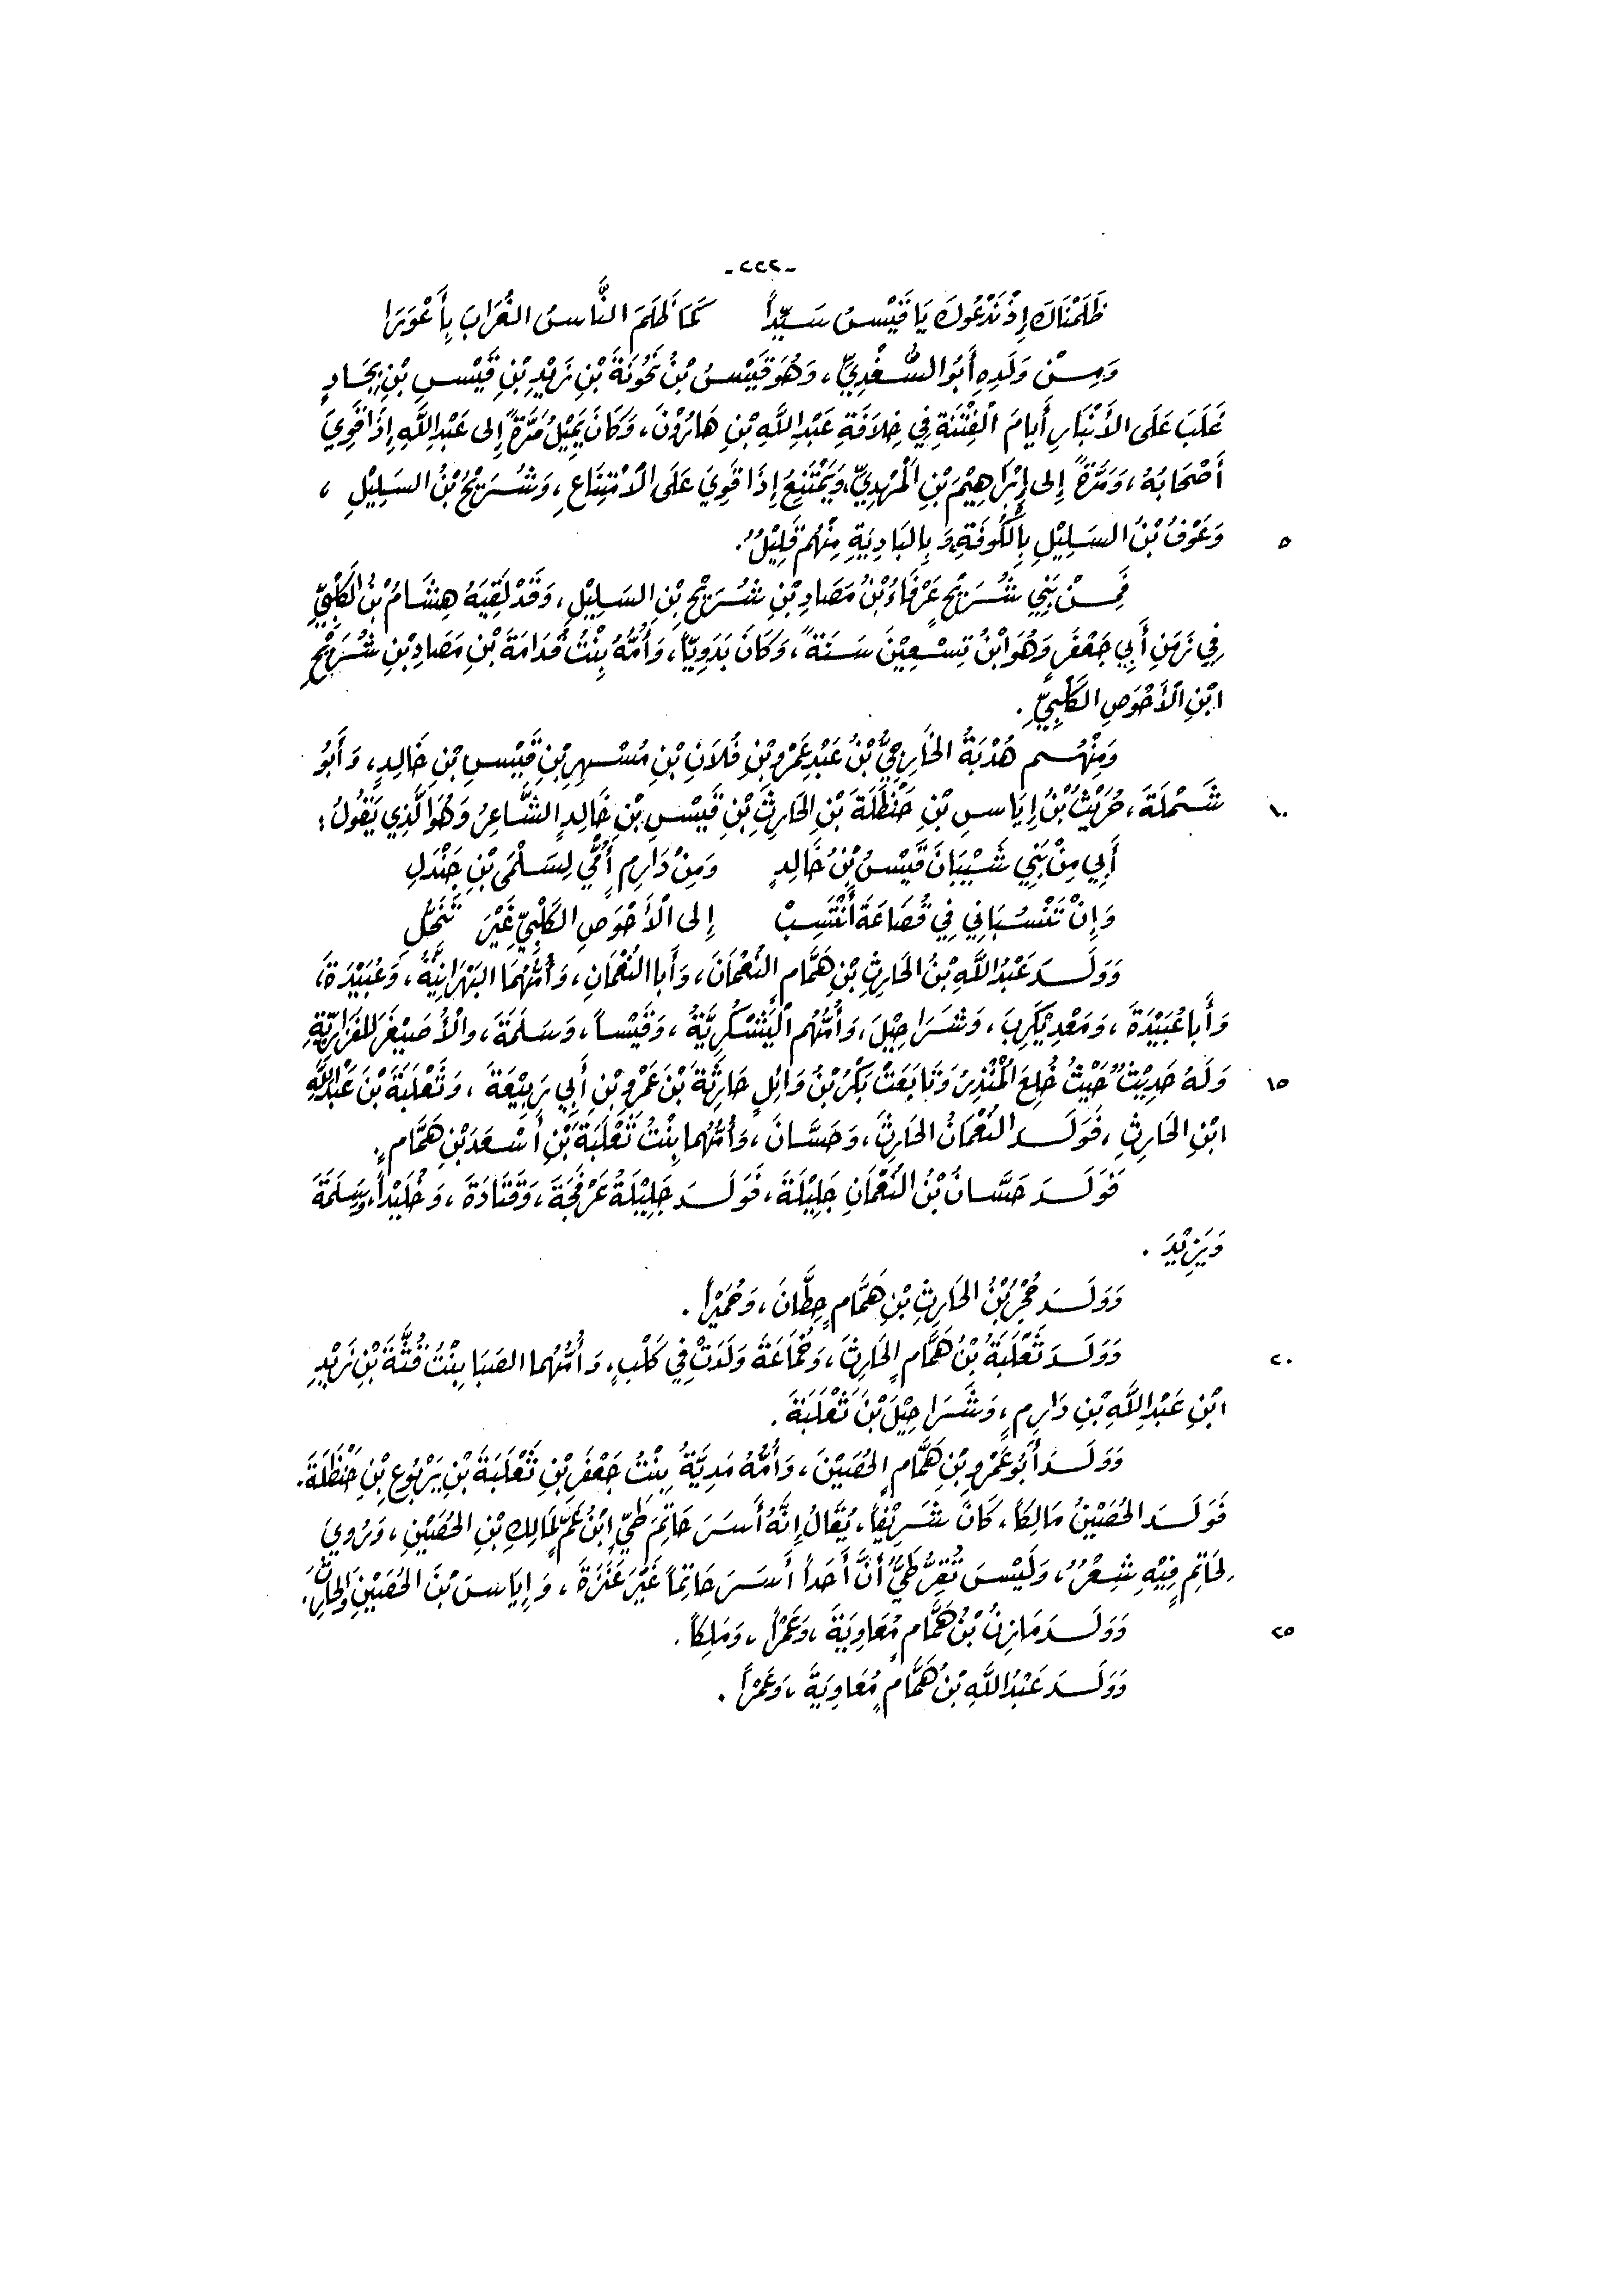 -٢٢٢-
ظَلَمْنَاكَ إِذْ نَدْعُوكَ يَا قَيْسُ سَيِّداً كَمَا ظَلَمَ النَّاسُ الغُرَابَ بِأَعْوَرَا
وَمِنْ وَلَدِهِ أَبُو السُّغْدِيِّ، وَهُوَ قَيْسُ بْنُ نَحُونَةَ بْنِ زَيْدِ بْنِ قَيْسِ بْنِ بِجَادٍ
غَلَبَ عَلَى الأَنْبَارِ أَيَّامَ الْفِتْنَةِ فِي خِلاَفَةِ عَبْدِ اللَّهِ بْنِ هَارُوْنَ، وَكَانَ يَمِيْلُ مَرَّةً إِلى عَبْدِ اللَّهِ إِذَا قَوِيَ
أَصْحَابُهُ، وَمَرَّةً إِلى إِبْرَاهِيْمَ بْنِ الْمَهْدِيِّ، وَيَمْتَنِعُ إِذَا قَوِيَ عَلَى الْاَمْتِنَاعِ، وَشُسَرَيْحُ بْنُ السَلِيْلِ،
٥ وَعَوْفُ بْنُ السَلِيْلِ بِالْكُوفَةِ وَبِالبَادِيَةِ مِنْهُمْ قَلِيْلٌ.
فَمِنْ بَنِي شُرَيْحٍ عَرْفَاءُ بْنُ مَصَادِ بْنِ شُرَيْحِ بْنِ السَلِيْلِ، وَقَدْ لَقِيَهُ هِشَامُ بْنُ الكَلْبِيِّ
فِي زَمَنِ أَبِي جَعْفَرٍ وَهُوَ ابْنُ تِسْعِيْنَ سَنَةً، وَكَانَ بَدَوِيّاً، وَأُمُّهُ بِنْتُ قُدَامَةَ بْنِ مَصَادِ بْنِ شُرَيْحِ
ابْنِ الْأَحْوَصِ الكَلْبِيِّ.
وَمِنْهُمْ هُدْبَةُ الخَارِجِيُّ بْنُ عَبْدِ عَمْرِو بْنِ فُلاَنِ بْنِ مُسْهِرِ بْنِ قَيْسِ بْنِ خَالِدٍ، وَأَبُو
١٠ شَمْلَةَ، حُرَيْثُ بْنُ إِيَاسِ بْنِ حَنْظَلَةَ بْنِ الحَارِثِ بْنِ قَيْسِ بْنِ خَالِدٍ الشَّاعِرُ وَهُوَ الَّذِي يَقُولُ:
أَبِي مِنْ بَنِي شَيْبَانَ قَيْسُ بْنُ خَالِدٍ وَمِنْ دَارِمٍ أُمِّي لِسَلْمَى بْنِ جَنْدَلِ
وَإِنْ تَنْسُبَانِي فِي قُضَاعَةَ أَنْتَسِبْ إِلى الْأَحْوَصِ الكَلْبِيِّ غَيْرَ تَنَحُّلِ
وَوَلَدَ عَبْدُ اللَّهِ بْنُ الحَارِثِ بْنِ هَمَّامٍ النُعْمَانَ، وَأَبا النُعْمَانِ، وَأُمُّهُمَا البَهْرَانِيَّةُ، وَعُبَيْدَةَ،
وَأَبا عُبَيْدَةَ، وَمَعْدِيْكَرِبَ، وَشَرَاحِيْلَ، وَأُمُّهُم الْيَشْكُرِيَّةُ، وَقَيْساً، وَسَلَمَةَ، والْأُصَيْغِرَ لِلفَزَارِيَّةِ
١٥ وَلَهُ حَدِيْثٌ حَيْثُ خُلِعَ المُنْذِرُ وَتَابَعَتْ بَكْرُ بْنُ وَائِلٍ حَارِثَةَ بْنَ عَمْرِو بْنِ أَبِي رَبِيْعَةَ، وَثَعْلَبَةَ بْنَ عَبْدِ اللَّهِ
ابْنِ الحَارِثِ، فَوَلَدَ النُعْمَانُ الحَارِثَ، وَحَسَّانَ، وَأُمُّهُما بِنْتُ ثَعْلَبَةَ بْنِ أَسْعَدَ بْنِ هَمَّامٍ.
فَوَلَدَ حَسَّانُ بْنُ النُعْمَانِ جَلِيْلَةَ، فَوَلَدَ جَلِيْلَةُ عَرْفَجَةَ، وَقَتَادَةَ، وَخُلَيْداً، وَسَلَمَةَ
وَيَزِيْدَ.
وَوَلَدَ حُجْرُ بْنُ الحَارِثِ بْنِ هَمَّامٍ حِطَّانَ، وَحُمَيْراً.
٢٠ وَوَلَدَ ثَعْلَبَةُ بْنُ هَمَّامٍ الحَارِثَ، وَخُمَاعَةَ وَلَدَتْ فِي كَلْبٍ، وَأُمُّهُما الصَبَا بِنْتُ قُنَّةَ بْنِ زَيْدِ
ابْنِ عَبْدِ اللَّهِ بْنِ دَارِمٍ، وَشَرَاحِيْلَ بْنَ ثَعْلَبَةَ.
وَوَلَدَ أَبُو عَمْرِو بْنِ هَمَّامٍ الحُصَيْنَ، وَأُمُّهُ مَدِيَّةُ بِنْتُ جَعْفَرِ بْنِ ثَعْلَبَةَ بْنِ يَرْبُوعِ بْنِ حَنْظَلَةَ.
فَوَلَدَ الحُصَيْنُ مَالِكاً، كَانَ شَرِيْفاً، يُقَالُ إِنَّهُ أَسَرَ حَاتِمَ طَيِّءٍ ابْنُ عَمٍّ لِمَالِكِ بْنِ الحُصَيْنِ، وَرُوِيَ
لِحَاتِمٍ فِيْهِ شِعْرٌ، وَلَيْسَ تُقِرُّ طَيٌّ أَنَّ أَحَداً أَسَرَ حَاتِماً غَيْرَ عَنَزَةَ، وَإِيَاسَ بْنَ الحُصَيْنِ وَالحَارِثَ.
٢٥ وَوَلَدَ مَازِنُ بْنُ هَمَّامٍ مُعَاوِيَةَ، وَعَمْراً، وَمَلِكاً.
وَوَلَدَ عَبْدُ اللَّهِ بْنُ هَمَّامٍ مُعَاوِيَةَ، وَعَمْراً.